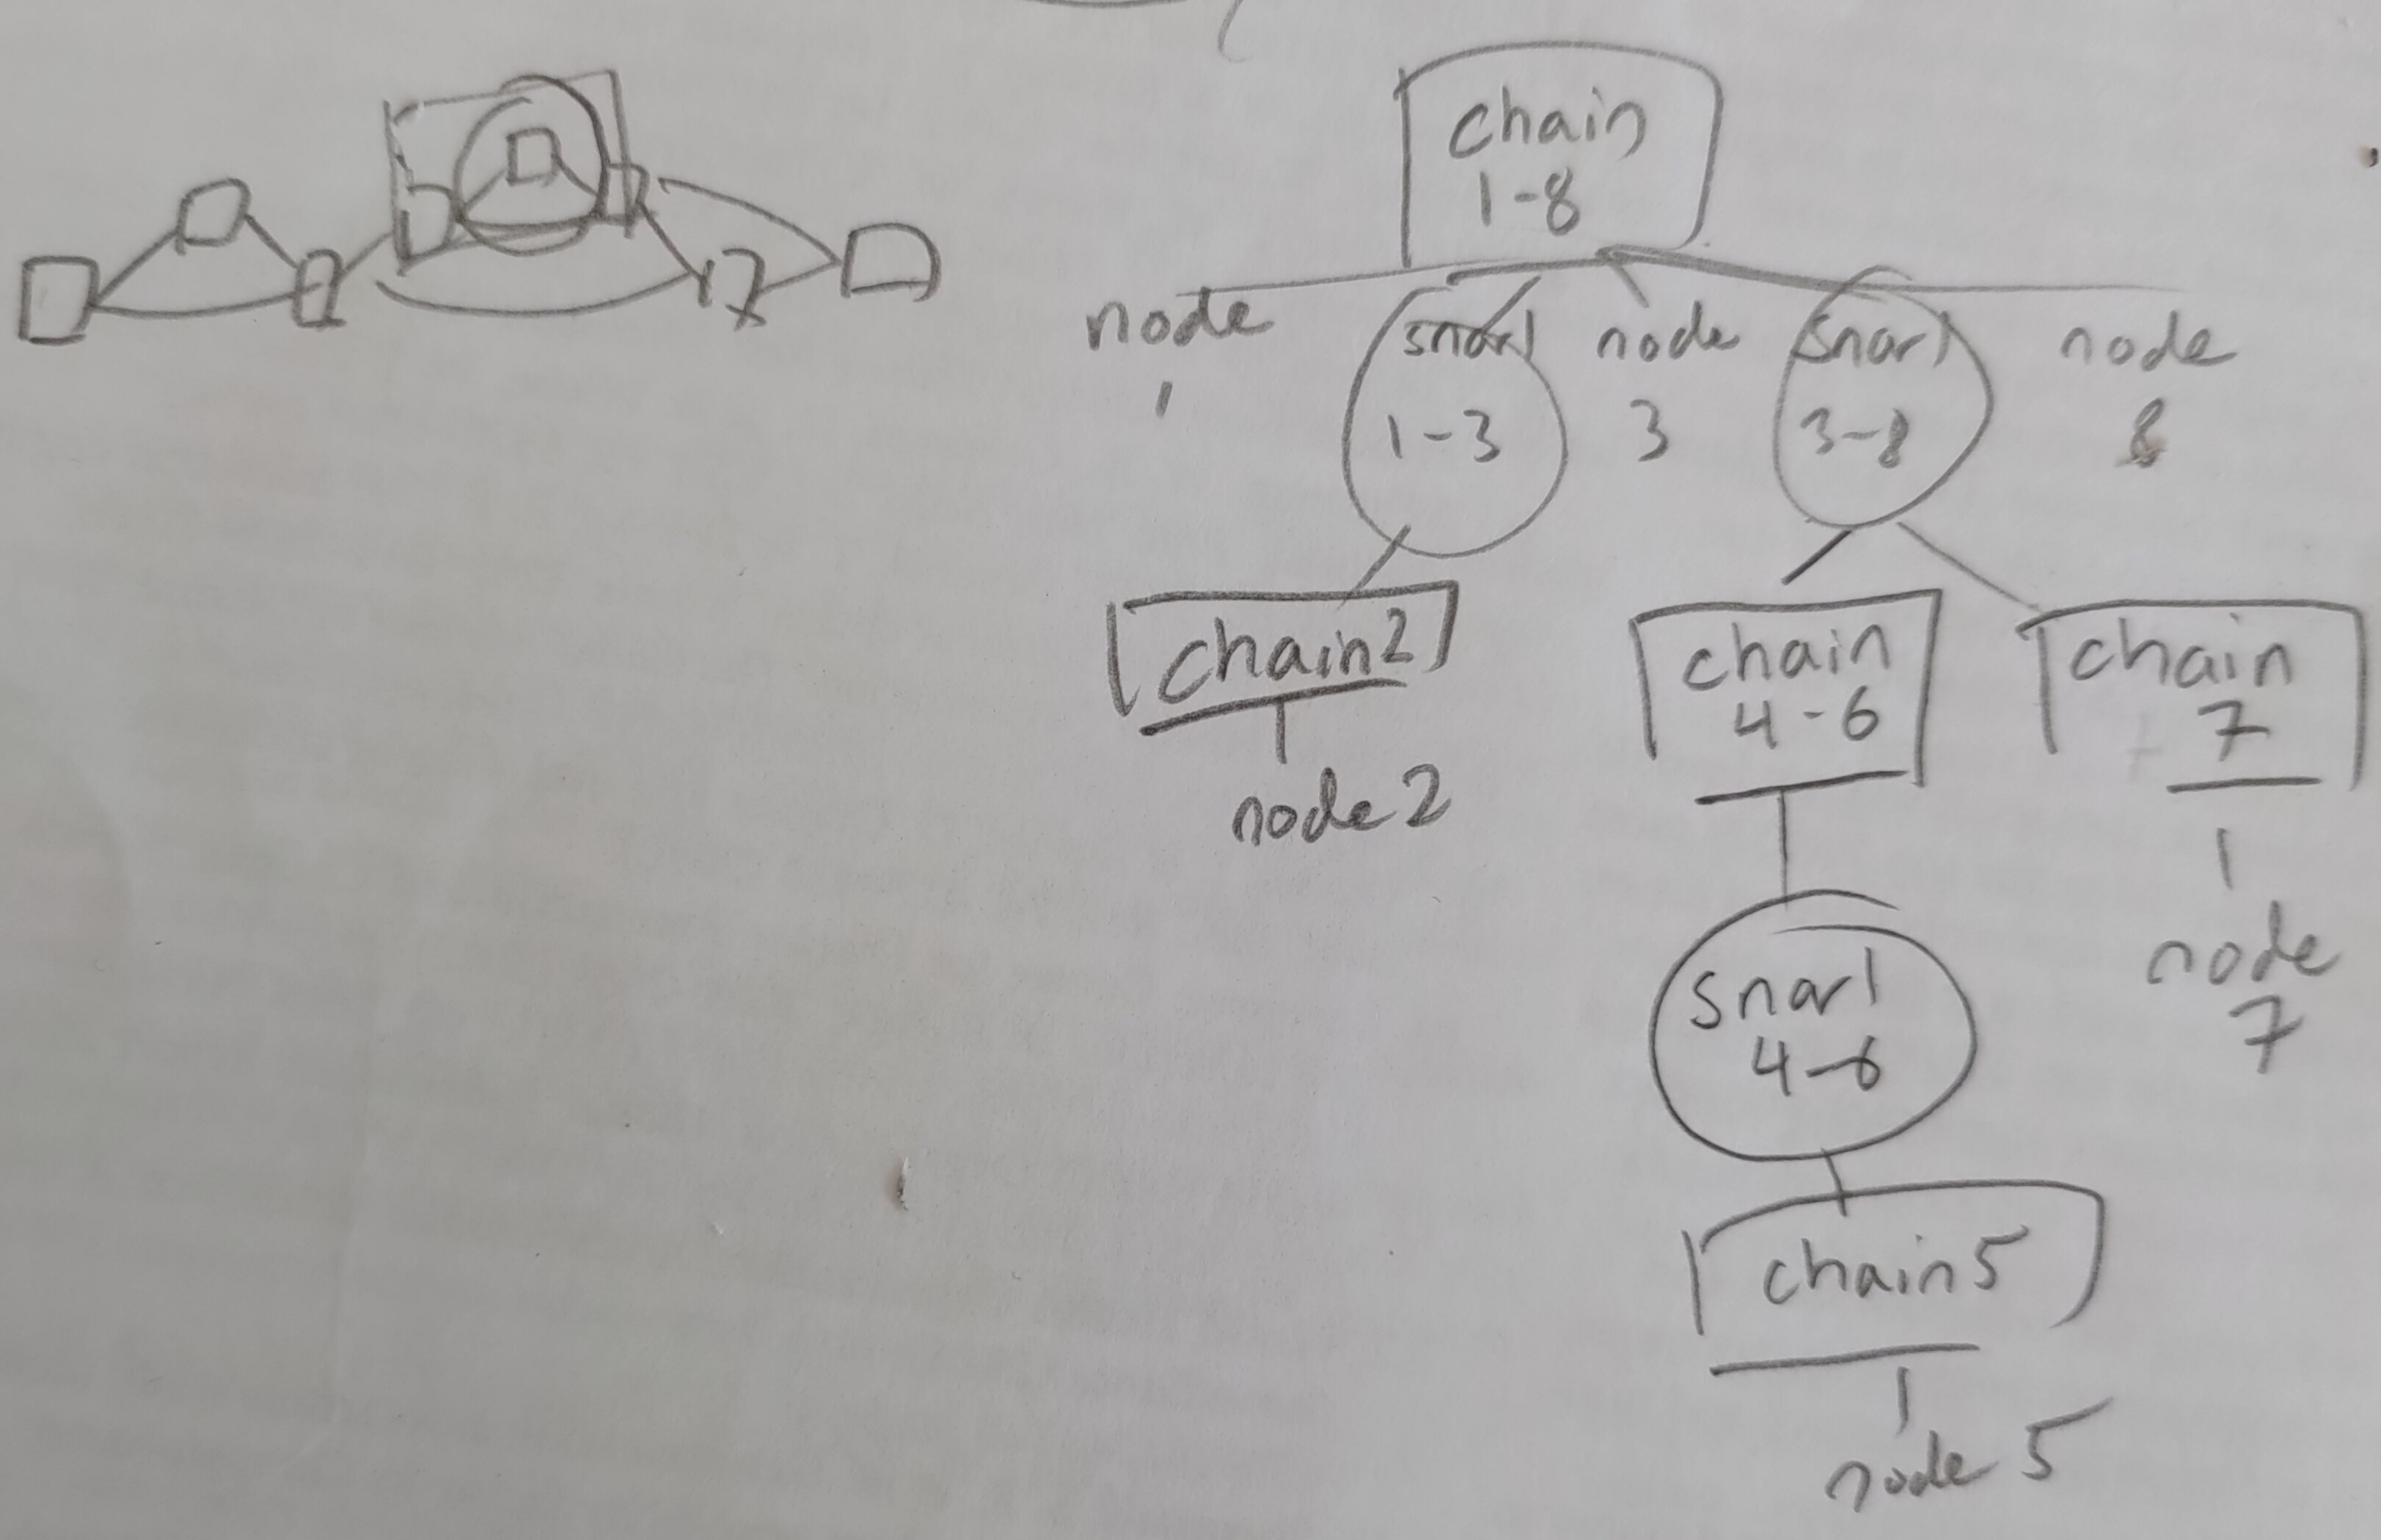 chain
1-8
node
1
snarl
1-3
node
3
snarl
3-8
node
8
chain2
node2
chain
4-6
chain
7
node
7
snarl
4-6
chain5
node 5